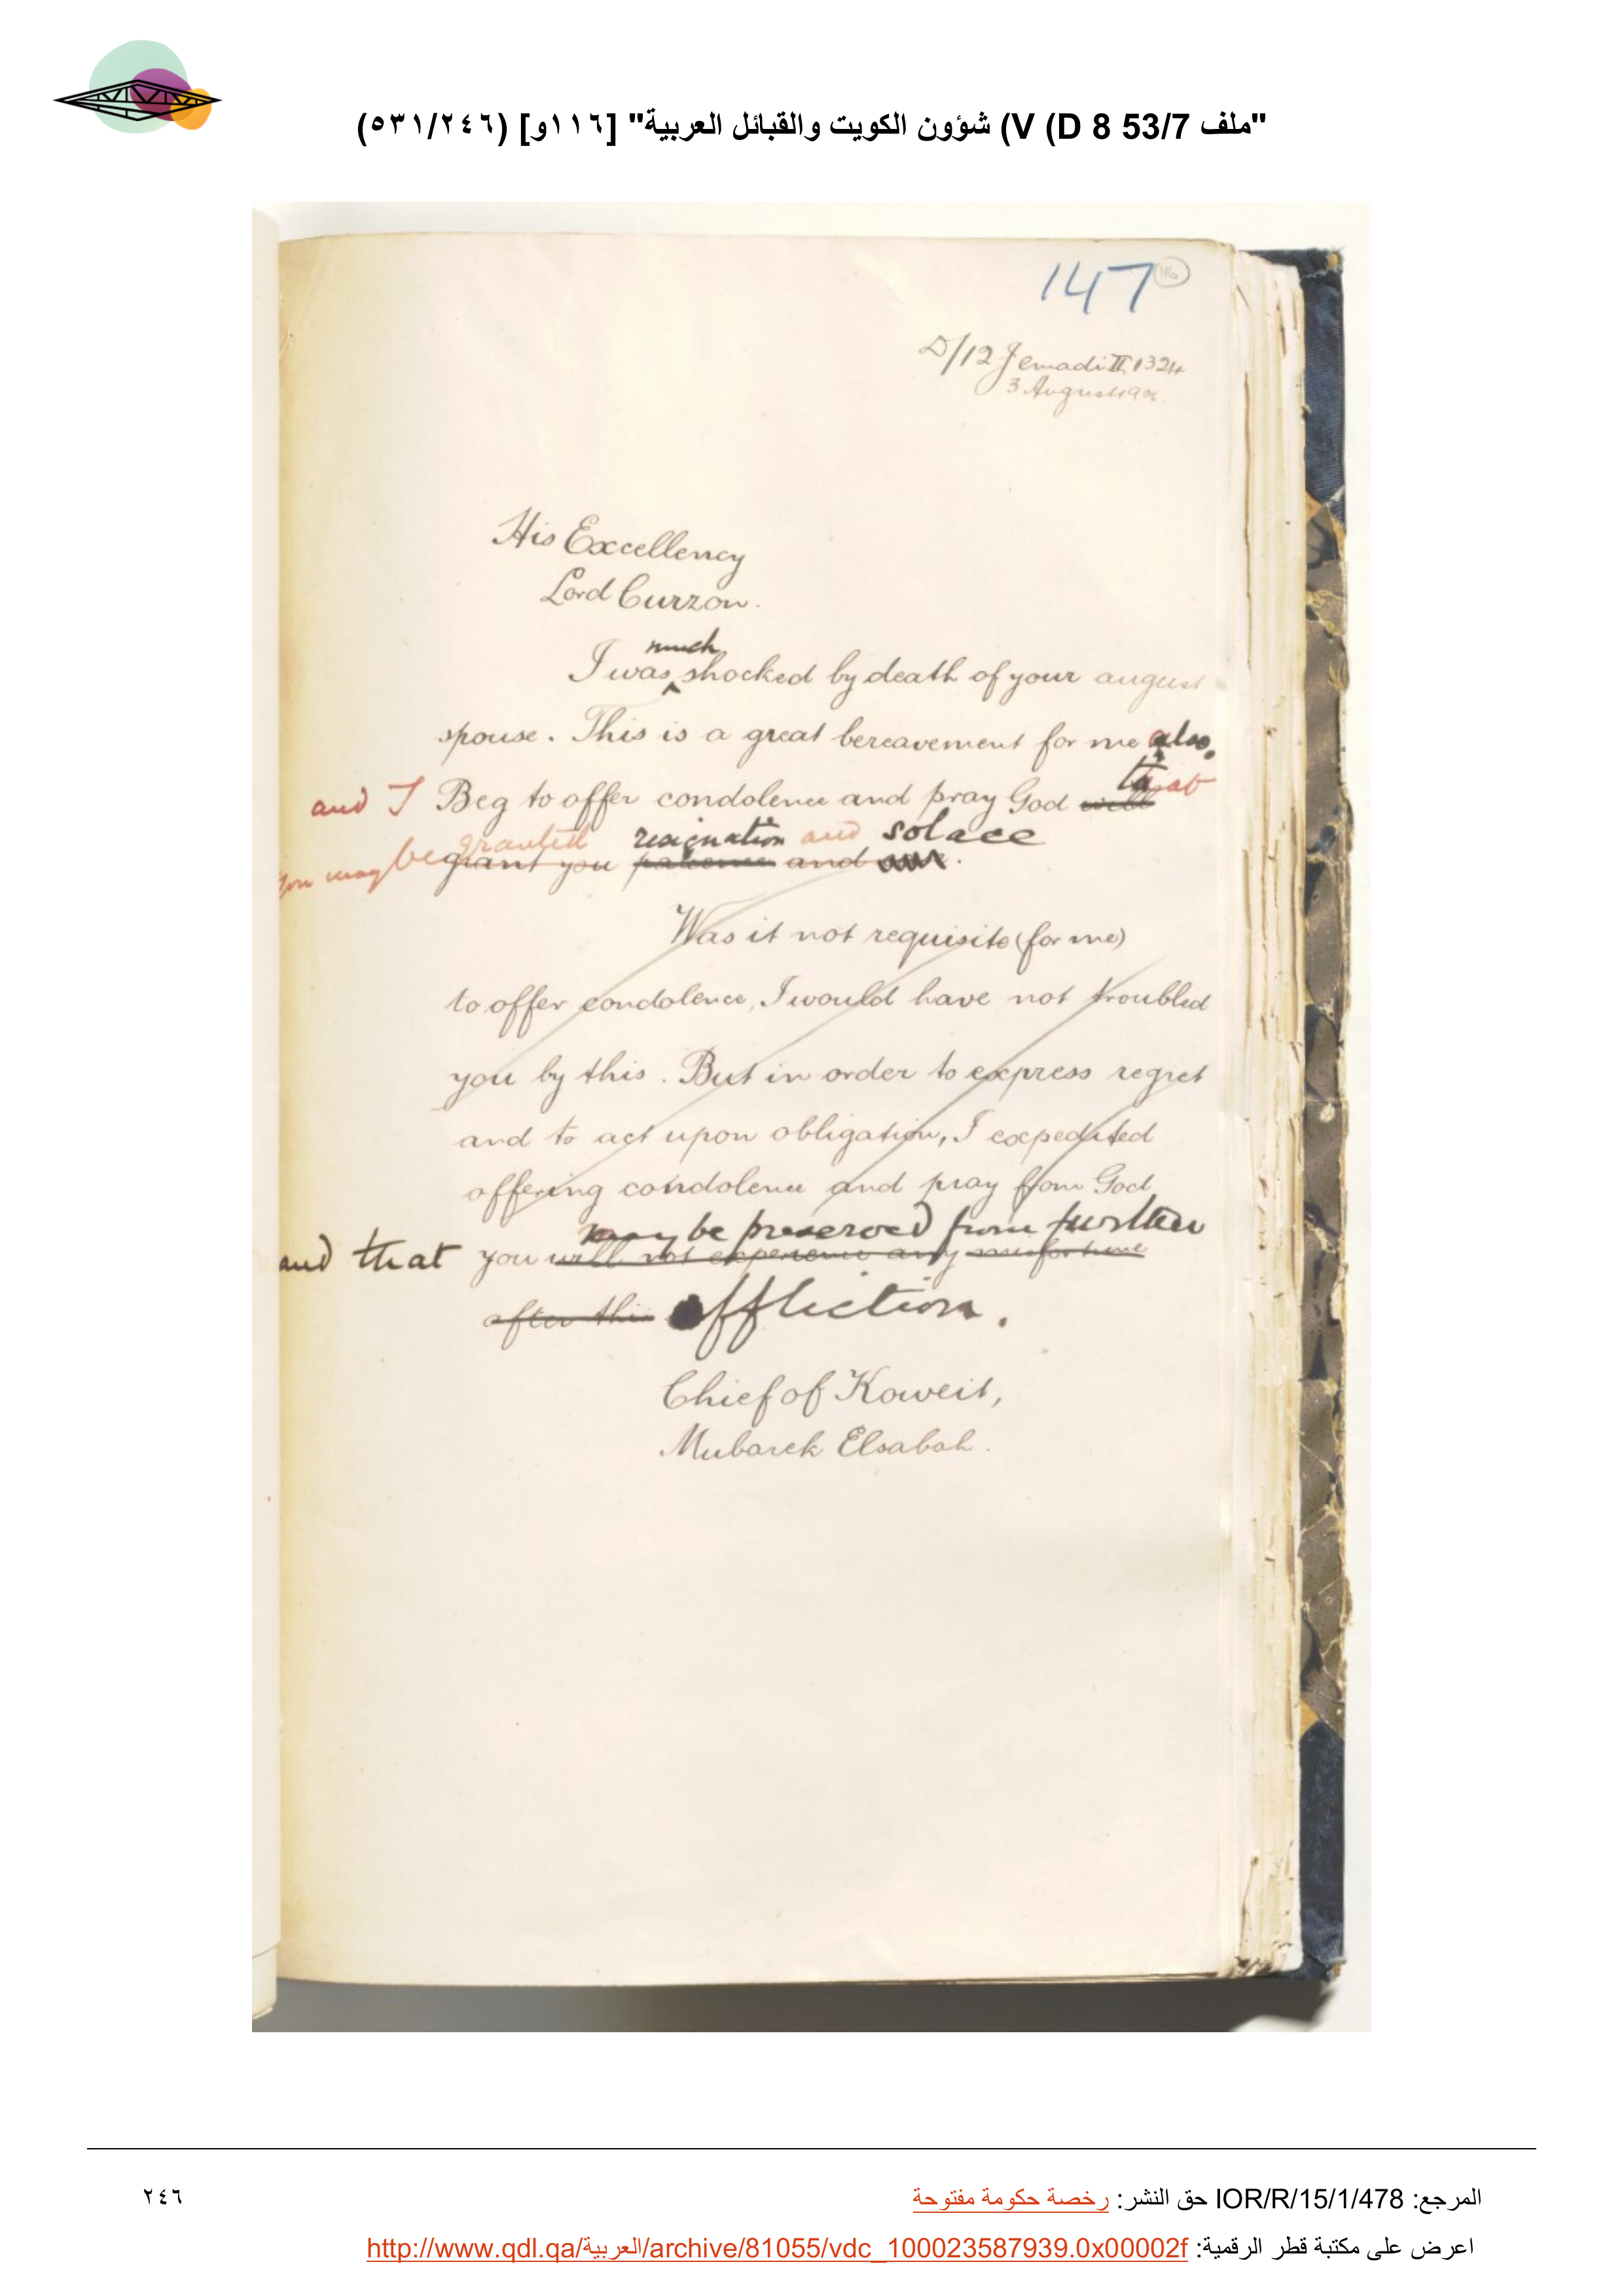 "ملف 53/7 V (D 8) شؤون الكويت والقبائل العربية" [١١٦و] (٥٣١/٢٤٦)
147
116
D/12 Jemadi II 1324
3 August 1906.
His Excellency
Lord Curzon.
much
I was shocked by death of your august
spouse. This is a great bereavement for me also,
that
and I Beg to offer condolence and pray God will
granted resignation and solace
you may be grant you patience and
Was it not requisite (for me)
to offer condolence, I would have not troubled
you by this. But in order to express regret
and to act upon obligation, I expedited
offering condolence and pray from God
may be preserved from further
and that you will not experience any misfortune
after this affliction.
Chief of Koweit,
Mubarek Elsabah.
المرجع: IOR/R/15/1/478 حق النشر: رخصة حكومة مفتوحة
٢٤٦
اعرض على مكتبة قطر الرقمية: http://www.qdl.qa/العربية/archive/81055/vdc_100023587939.0x00002f